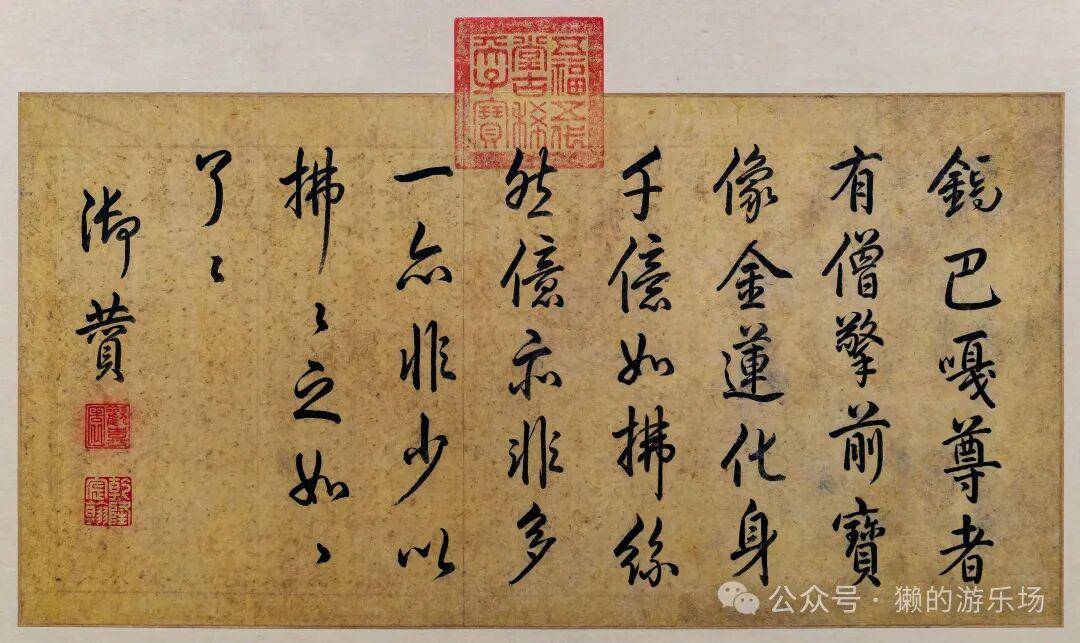 五福五代
堂古稀
天子寶
鍋巴嘎尊者
有僧擎前寶
像金蓮化身
千億如拂絲
然億亦非多
一亦非少以
拂〻之如〻
了〻
御贊
乾隆
宸翰
公众号 · 獭的游乐场